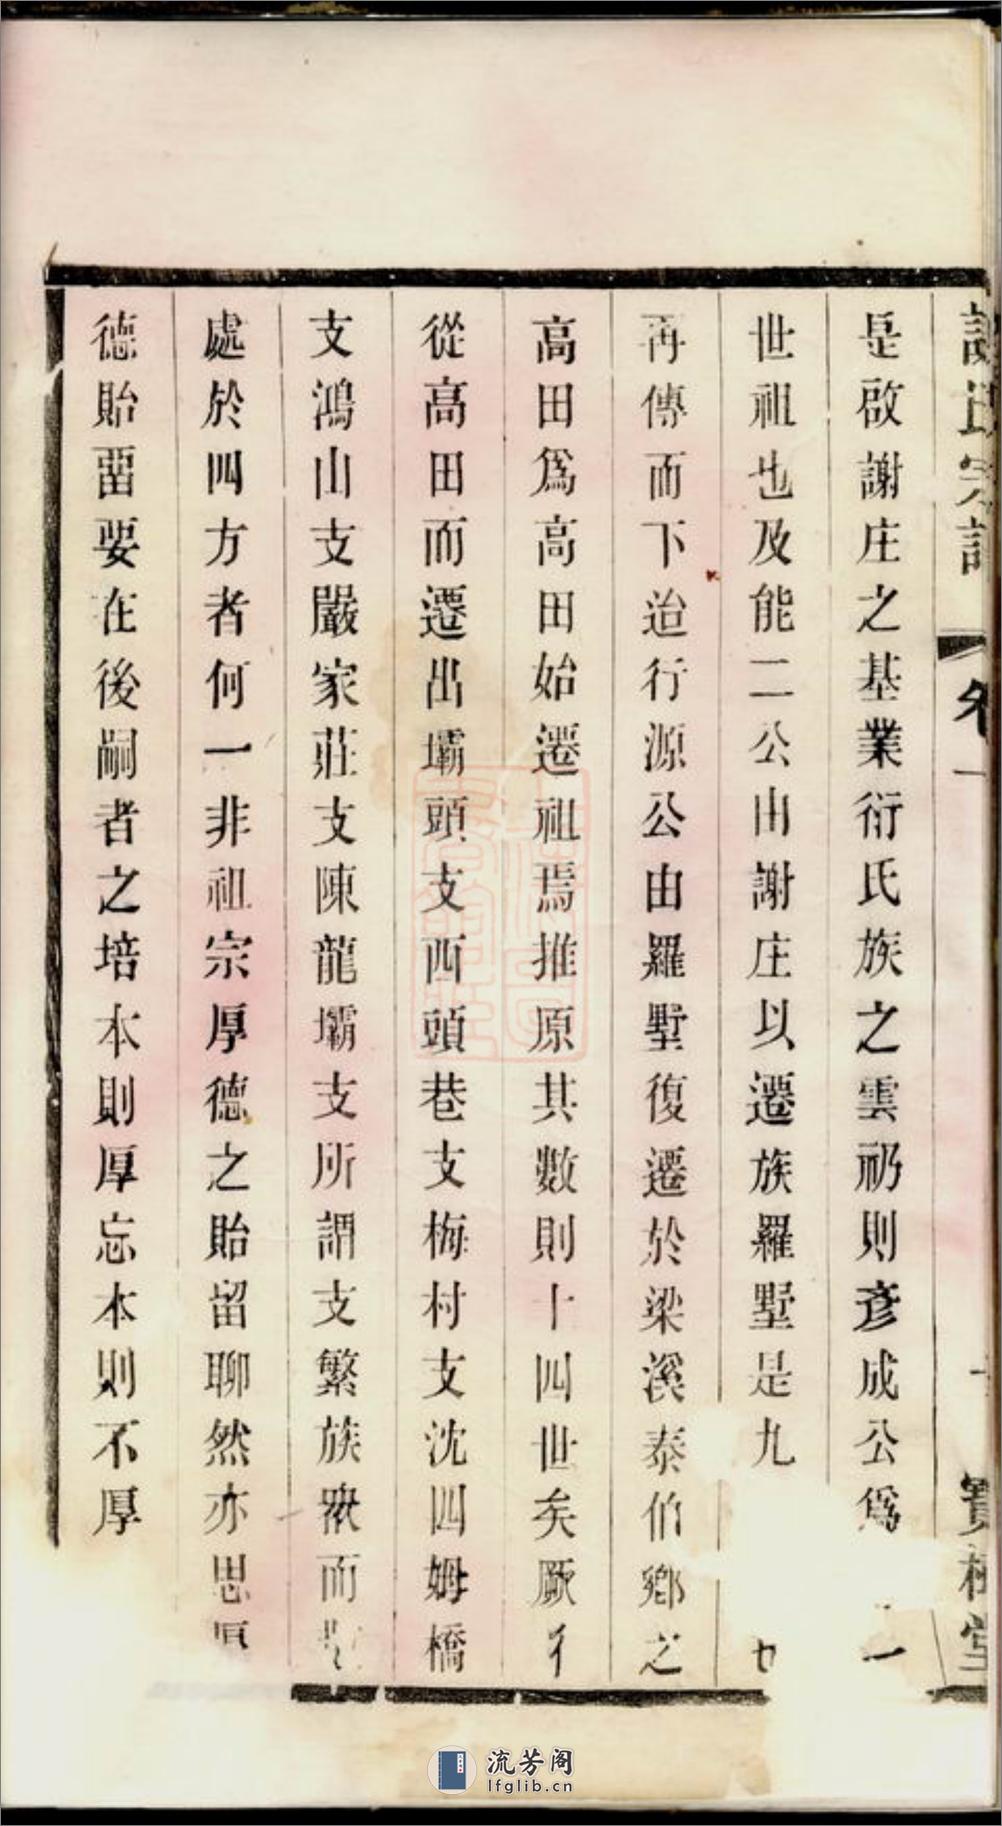 是啟謝庄之基業衍氏族之雲礽則彥成公爲
世祖也及能二公由謝庄以遷族羅墅是九
再傳而下迨行源公由羅墅復遷於梁溪泰伯鄉之
高田爲高田始遷祖焉推原其數則十四世矣厥
從高田而遷出壩頭支西頭巷支梅村支沈四姆橋
支鴻山支嚴家莊支陳龍壩支所謂支繁族眾而
處於四方者何一非祖宗厚德之貽留聊然亦思厚
德貽畱要在後嗣者之培本則厚忘本則不厚
流芳阁
lfglib.cn